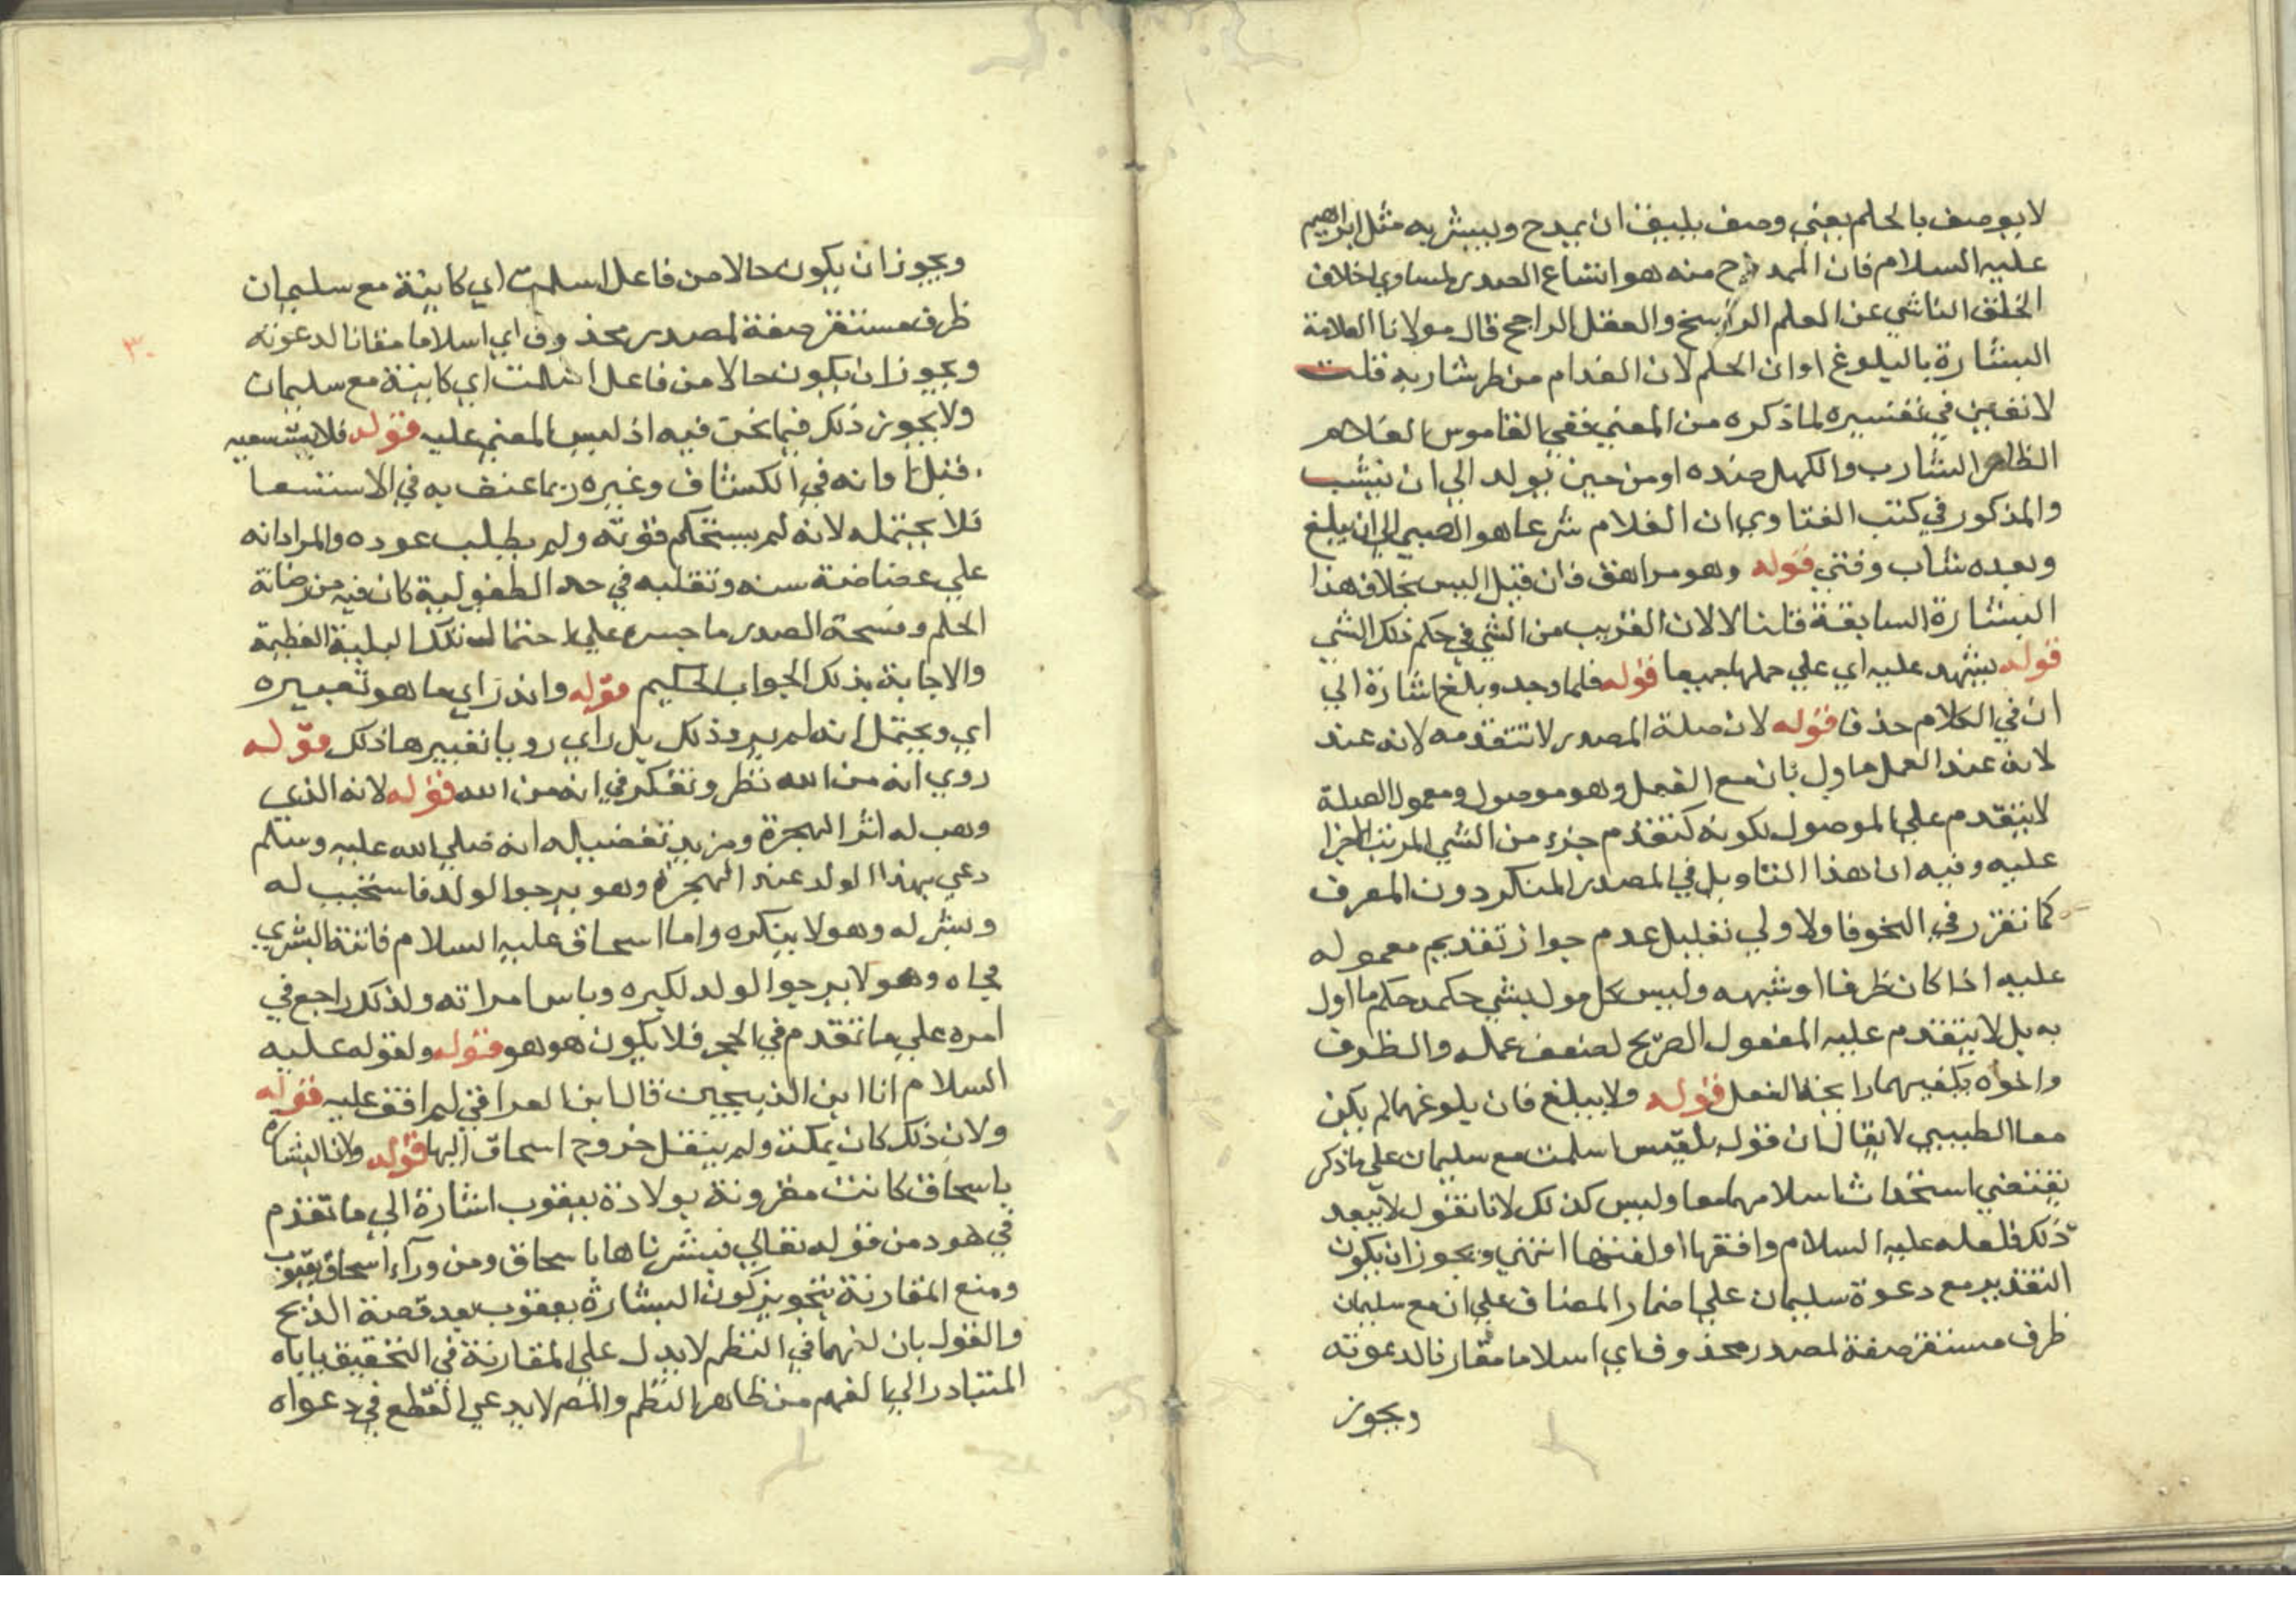 لا يوصف بالحلم يعني وصف يليق ان يمدح ويبشر به مثل ابراهيم
عليه السلام فان الممدوح منه هو اتساع الصدر لمساوي اخلاق
الخلق الناشي عن العلم الراسخ والعقل الراجح قال مولانا العلامة
البشارة بالبلوغ اوان الحلم لان الغلام من طر شاربه قلت
لا تعين في تفسيره لما ذكره من المعني ففي القاموس الغلام
الطار الشارب والكهل ضده او من حين يولد الي ان يشب
والمذكور في كتب الفتاوي ان الغلام شرعا هو الصبي الي ان يبلغ
وبعده شاب وفتي قوله وهو مراهق فان قيل اليس بخلاف هذا
البشارة السابقة قلنا لا لان القريب من الشي في حكم ذلك الشي
قوله يشهد عليه اي علي حملها جميعا قوله فلما وجد وبلغ اشارة الي
ان في الكلام حذفا قوله لان صلة المصدر لا تتقدمه لانه عند
لانه عند العمل ماول بان مع الفعل وهو موصول ومعمول الصلة
لا يتقدم علي الموصول لكونه كتقدم جزء من الشي المرتب الاجزا
عليه وفيه ان هذا التاويل في المصدر المنكر دون المعرف
كما تقرر في النحو فالاولي تعليل عدم جواز تقديم معموله
عليه اذا كان ظرفا او شبهه وليس كل مول بشي حكمه حكم ما اول
به بل لا يتقدم عليه المفعول الصريح لضعف عمله والظرف
واخواه يكفيهما رايحة الفعل قوله ولا يبلغ فان بلوغهما لم يكن
معا الطيبي لا يقال ان قوله بلقيس اسلمت مع سليمان علي ما ذكر
يقتضي استحداث اسلامهما معا وليس كذلك لانا نقول لا يبعد
ذلك فلعله عليه السلام وافقها او لقنها انتهي ويجوز ان يكون
التقدير مع دعوة سليمان علي اضمار المضاف علي ان مع سليمان
ظرف مستقر صفة لمصدر محذوف اي اسلاما مقارنا لدعوته
ويجوز
ويجوز ان يكون حالا من فاعل اسلمت اي كاينة مع سليمان
ظرف مستقر صفة لمصدر محذوف اي اسلاما مقانا لدعوته
٣٠
ويجوز ان يكون حالا من فاعل اسلمت اي كاينة مع سليمان
ولا يجوز ذلك فيما نحن فيه اذ ليس المعني عليه قوله فلا يستسعيه
قبل اوانه في الكشاف وغيره ربما عنف به في الاستسعا
فلا يحتمله لانه لم يستحكم قوته ولم يطلب عوده والمراد انه
علي غضاضة سنه وتقلبه في حد الطفولية كان فيه من رصانة
الحلم وفسحة الصدر ما جسره علي احتمال تلك البلية العظيمة
والاجابة بذلك الجواب الحكيم قوله وانه راي ما هو تعبيره
اي ويحتمل انه لم ير وذلك بل راي رويا تعبيرها ذلك قوله
روي انه من الله نظر وتفكر في انه من الله قوله لانه الذي
وهب له اثر الهجرة ومزيد تفضيله انه صلي الله عليه وسلم
دعي بهذا الولد عند الهجرة وهو يرجوا الولد فاستجيب له
وبشر له وهو لا ينكره واما اسحاق عليه السلام فاتته البشري
فجاه وهو لا يرجوا الولد لكبره وياس امراته ولذلك راجع في
امره علي ما تقدم في الحجر فلا يكون هو هو قوله ولقوله عليه
السلام انا ابن الذبيحين قال ابن العراقي لم اقف عليه قوله
ولان ذلك كان بمكة ولم ينقل خروج اسحاق اليها قوله ولان البشارة
باسحاق كانت مقرونة بولادة يعقوب اشارة الي ما تقدم
في هود من قوله تعالي فبشرناها باسحاق ومن ورآء اسحاق يعقوب
ومنع المقارنة بتجويز كون البشارة بيعقوب بعد قصة الذبح
والقول بان لزهما في النظم لا يدل علي المقارنة في التحقيق ياباه
المتبادر الي الفهم من ظاهر النظم والمص لا يدعي القطع في دعواه